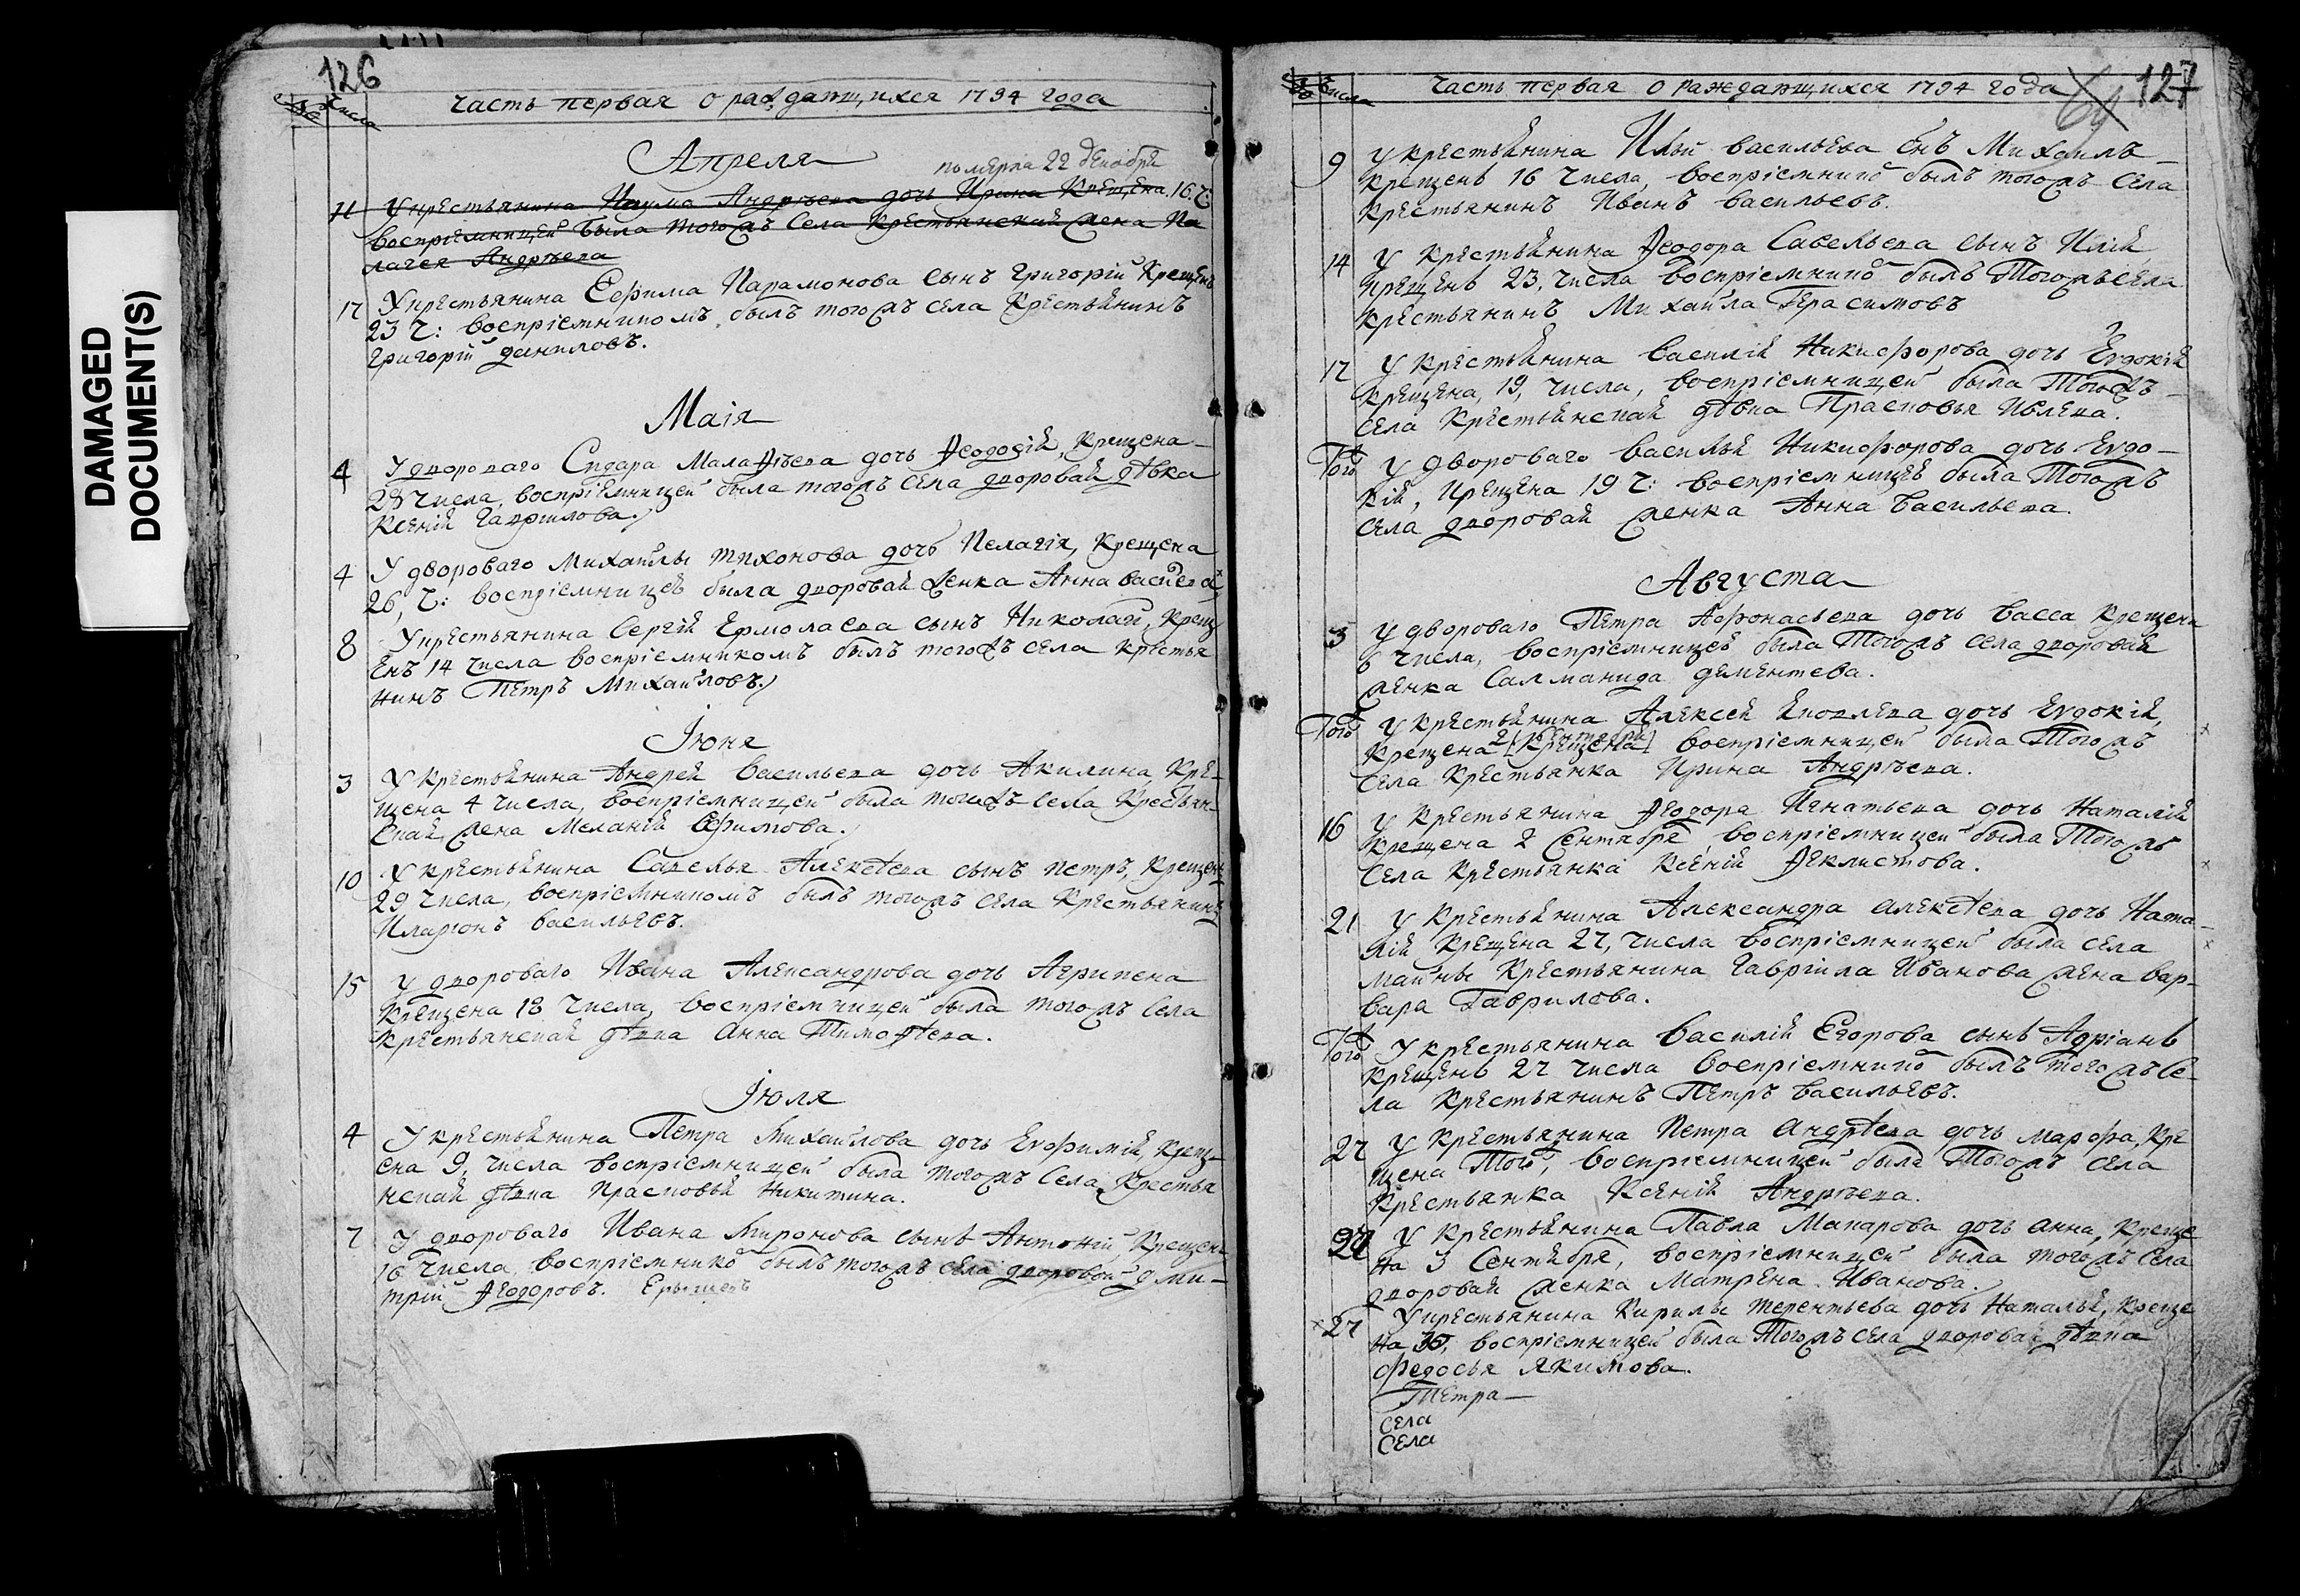 DAMAGED
DOCUMENT(S)
126
числа
часть первая о раждающихся 1794 года
Апреля
померла 22 декабря
11 У крестьянина Наума Андрѣева дочь Ирина Крещена 16 ч:
воспрiемницей была тогожъ села крестьянская жена Пе
лагея Андрѣева
17 У крестьянина Еѳима Парамонова сынъ Григорiй Крещенъ
23 ч: воспрiемникомъ былъ тогожъ села крестьянинъ
Григорiй Даниловъ.
Маiя
4 У двороваго Сидара Малаѳѣева дочь Ѳеодосiя, Крещена
числа, воспрiемницей была тогожъ села дворовая дѣвка
Ксенiя Гаврилова.
4 У двороваго Михайлы Тихонова дочь Пелагiя, Крещена
26, ч: воспрiемницей была дворовая женка Анна
8 У крестьянина Сергiя Ермолаева сынъ Николай, Крещ
енъ 14 числа воспрiемникомъ былъ тогожъ села крестья
нинъ Петръ Михайловъ.
Iюня
3 У крестьянина Андрея Васильева дочь Акилина, Кре
щена 4 числа, воспрiемницей была тогожъ села Крестьян
ская жена Меланiя Ефимова.
10 У крестьянина Савелья Алексѣева сынъ Петръ, Крещенъ
29 числа, воспрiемникомъ былъ тогожъ села Крестьянинъ
Иларiонъ Васильевъ.
15 У двороваго Ивана Александрова дочь Агрипена
Крещена 18 числа, воспрiемницей была тогожъ села
Крестьянская дѣвка Анна Тимоѳѣева.
Iюля
4 У крестьянина Петра Михайлова дочь Евфимiя, Крещ
ена 9, числа воспрiемницей была тогожъ села Крестья
нская дѣвка Прасковья Никитина.
7 У двороваго Ивана Миронова сынъ Антонiй Крещенъ
16 числа, воспрiемнико былъ тогожъ села дворовой Дми
трiй Ѳеодоровъ.
127
числа
часть первая о раждающихся 1794 года
9 У крестьянина Ильи Васильева снъ Михаилъ
Крещенъ 16 числа, воспрiемнико былъ тогожъ села
Крестьянинъ Иванъ Васильевъ.
14 У крестьянина Ѳеодора Савельева сынъ Илiя
Крещенъ 23, числа воспрiемнико былъ тогожъ села
Крестьянинъ Михайла Герасимовъ
17 У крестьянина Василiя Никифорова дочь Евдокiя
Крещена, 19, числа, воспрiемницей была тогожъ
села Крестьянская дѣвка Прасковья Ивлева.
Того У двороваго Василья Никифорова дочь Евдо
кiя, Крещена 19 ч: воспрiемницей была тогожъ
села дворовая женка Анна Васильева.
Августа
3 У двороваго Петра Афонасьева дочь Васса Крещена
6 числа, воспрiемницей была тогожъ села дворовая
женка Салманида Дементева.
Того У крестьянина Алексея Яковлева дочь Евдокiя,
2 сентября
Крещена [Крещена] воспрiемницей была тогожъ
села Крестьянка Ирина Андрѣева.
16 У крестьянина Ѳеодора Игнатьева дочь Наталiя
Крещена 2 Сентября, воспрiемницей была тогожъ
села Крестьянка Ксенiя Ѳеклистова.
21 У крестьянина Александра Алексѣева дочь Ната
лiя Крещена 27, числа воспрiемницей была села
Майны Крестьянина Гаврiила Иванова жена Вар
вара Гаврилова.
Того У крестьянина Василiя Егорова сынъ Адрiанъ
Крещенъ 27 числа воспрiемнико былъ тогожъ се
ла Крестьянинъ Петръ Васильевъ.
27 У крестьянина Петра Андрѣева дочь Марфа, Кре
щена того, воспрiемницей была тогожъ села
Крестьянка Ксенiя Андрѣева.
У крестьянина Павла Макарова дочь Анна, Креще
на 3 Сентября, воспрiемницей была тогожъ села
дворовая женка Матрена Иванова.
27 У крестьянина Кирилы Терентьева дочь Наталья, Креще
на 30, воспрiемницей была тогожъ села дворовая дѣвка
Федосья Якимова.
Петра
села
села